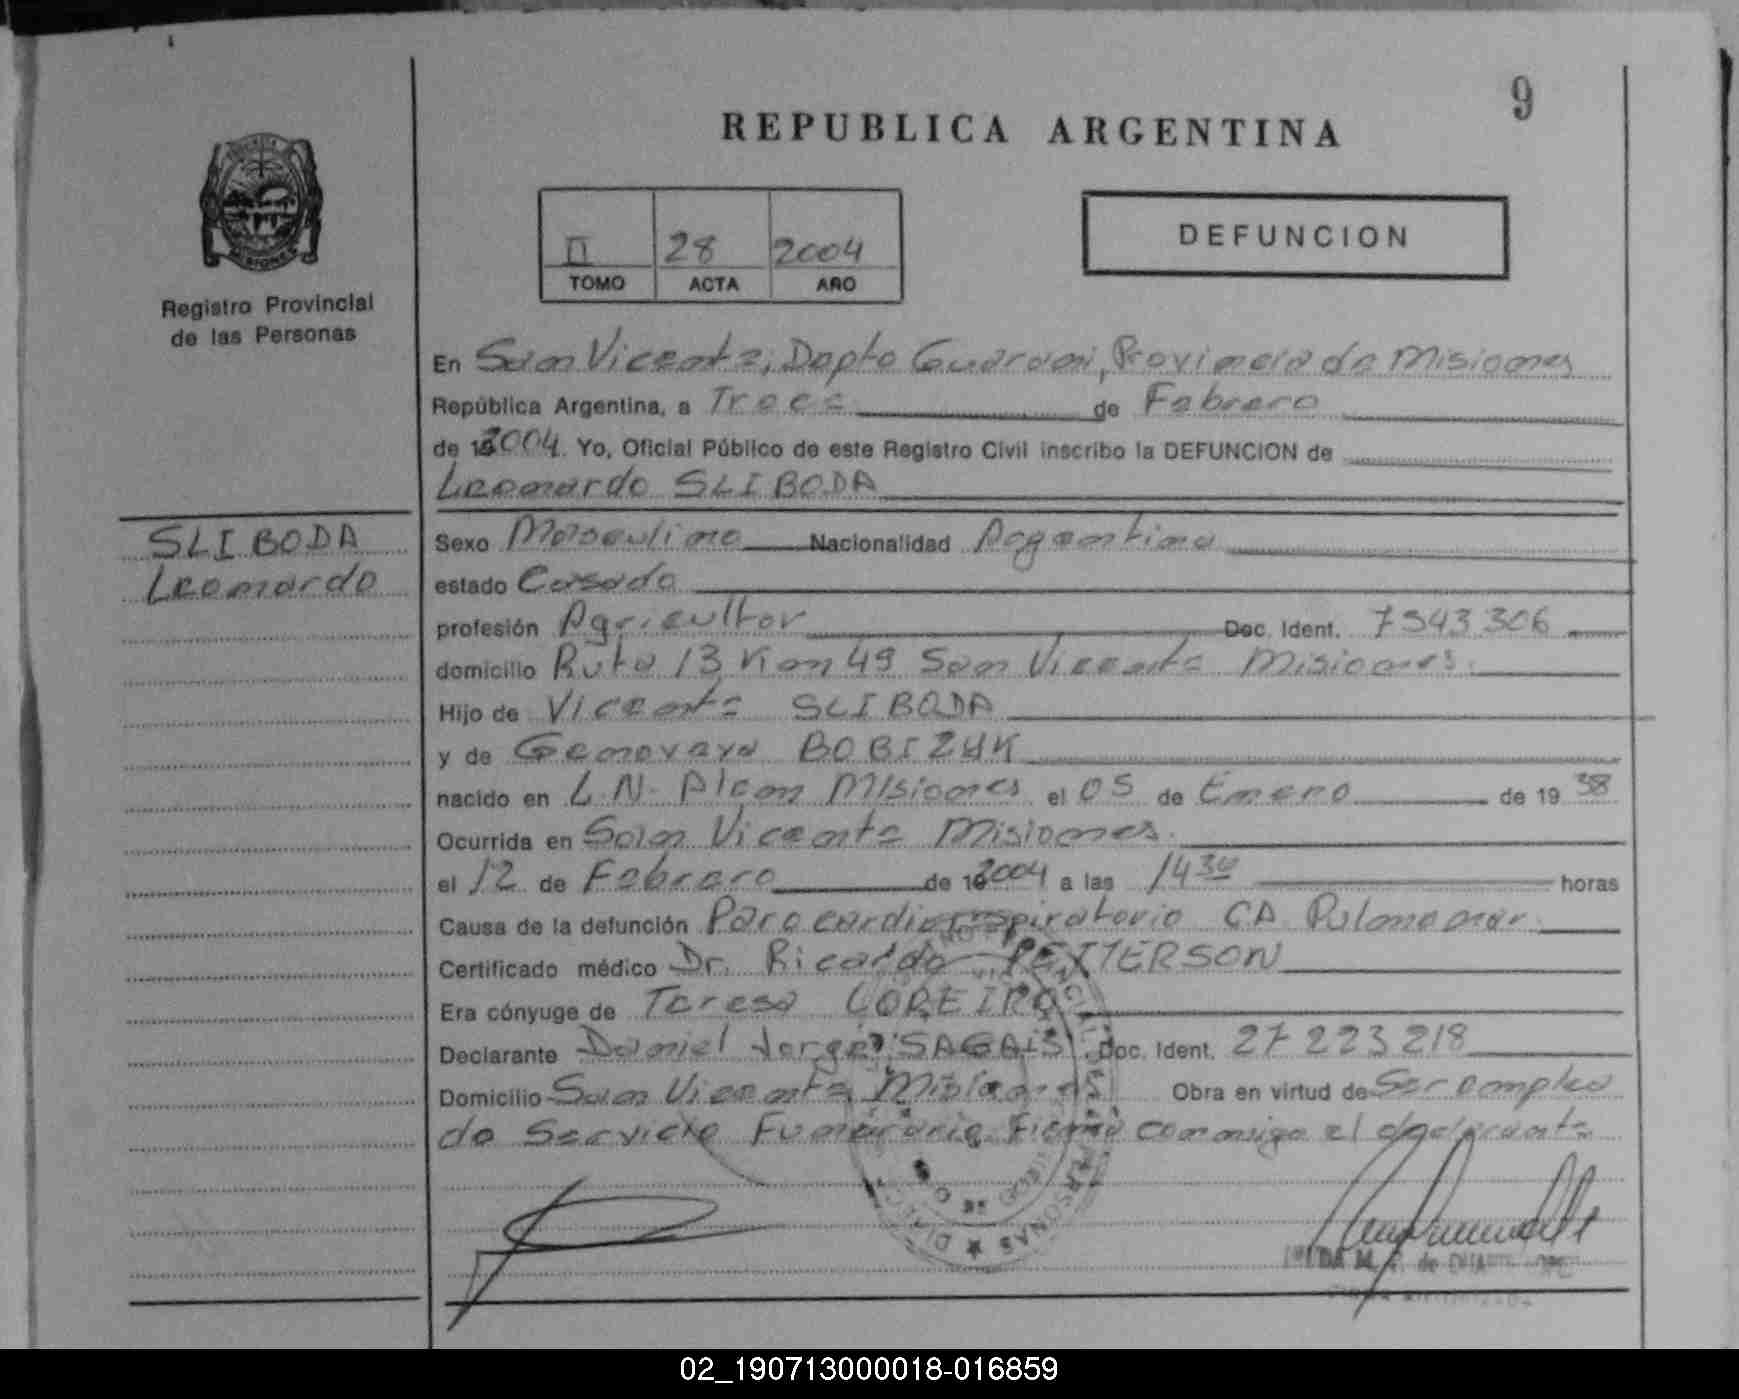 9
REPUBLICA ARGENTINA
II 28 2004
TOMO ACTA AÑO
DEFUNCION
Registro Provincial
de las Personas
En San Vicente, Dapto Guarani, Provincia de Misiones
República Argentina, a Trece de Febrero
de 2004. Yo, Oficial Público de este Registro Civil inscribo la DEFUNCION de
Leonardo SLIBODA
SLIBODA
Leonardo
Sexo Masculino Nacionalidad Argentina
estado Casado
profesión Agricultor Doc. Ident. 7543306
domicilio Ruta 13 Km 49 San Vicente Misiones.
Hijo de Vicente SLIBODA
y de Genoveva BOBIZUK
nacido en L.N. Alem Misiones el 05 de Enero de 1938
Ocurrida en San Vicente Misiones.
el 12 de Febrero de 2004 a las 14 30 horas
Causa de la defunción Paro cardiorrespiratorio CA. Pulmonar.
Certificado médico Dr. Ricardo PETTERSON
Era cónyuge de Teresa
Declarante Daniel Jorge SAGAIS Doc. Ident. 27 223 218
Domicilio San Vicente Misiones Obra en virtud de Ser empleo
de Servicio Funerario. Firma conmigo el
02_190713000018-016859